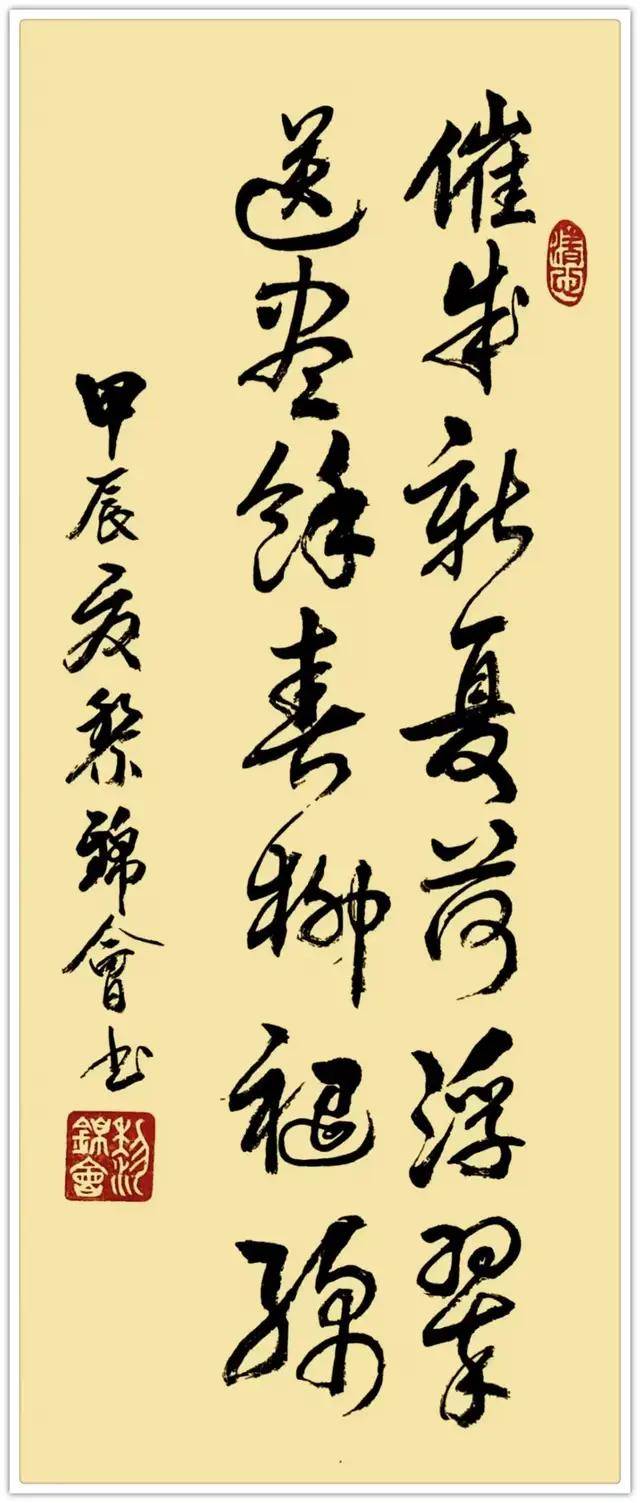 催成新夏荷浮翠
送尽餘春柳褪綿
甲辰夏黎錦會书
黎錦會